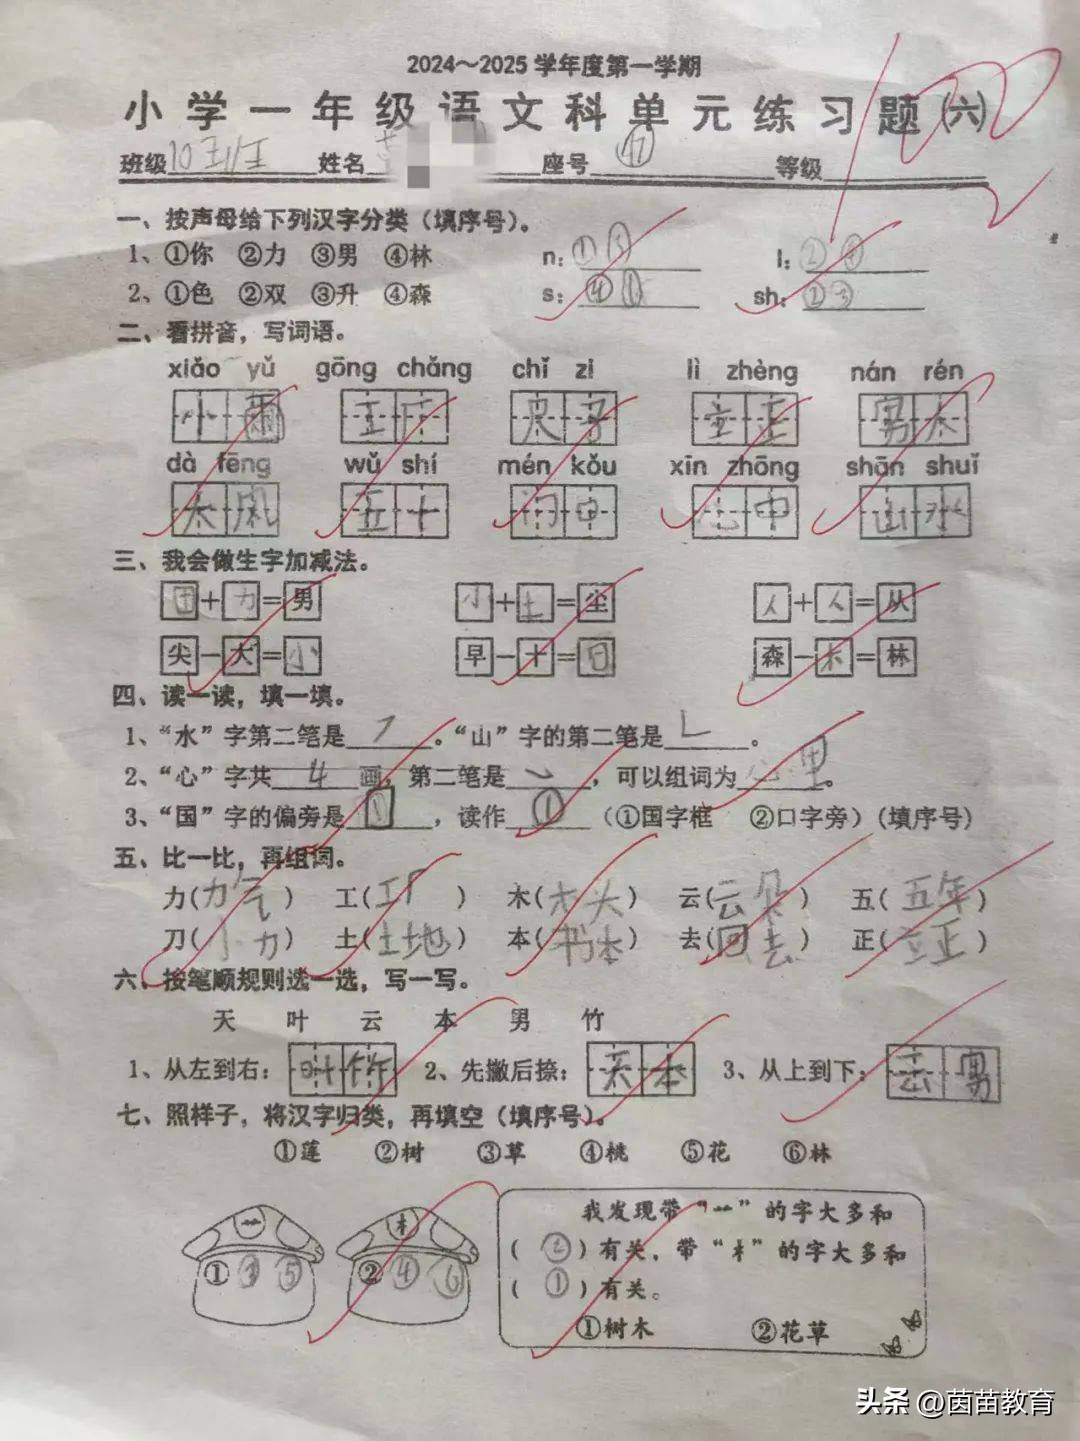 2024～2025学年度第一学期
小学一年级语文科单元练习题(六)
100
班级10班 姓名 座号 等级
一、按声母给下列汉字分类（填序号）。
1、①你 ②力 ③男 ④林 n：①③ l：②④
2、①色 ②双 ③升 ④森 s：④① sh：②③
二、看拼音，写词语。
xiǎo yǔ gōng chǎng chǐ zi lì zhèng nán rén
小雨 工厂 尺子 立正 男人
dà fēng wǔ shí mén kǒu xīn zhōng shān shuǐ
大风 五十 门口 心中 山水
三、我会做生字加减法。
田+力=男 小+土=尘 人+人=从
尖-大=小 早-十=日 森-木=林
四、读一读，填一填。
1、“水”字第二笔是㇇。“山”字的第二笔是㇄。
2、“心”字共4画，第二笔是㇃，可以组词为心里。
3、“国”字的偏旁是囗，读作①（①国字框 ②口字旁）(填序号)
五、比一比，再组词。
力(力气) 工(工厂) 木(木头) 云(云朵) 五(五年)
刀(小刀) 土(土地) 本(书本) 去(回去) 正(立正)
六、按笔顺规则选一选，写一写。
天 叶 云 本 男 竹
1、从左到右：叶竹 2、先撇后捺：天本 3、从上到下：云男
七、照样子，将汉字归类，再填空（填序号）。
①莲 ②树 ③草 ④桃 ⑤花 ⑥林
艹 木
①③⑤ ②④⑥
我发现带“艹”的字大多和
(②)有关，带“木”的字大多和
(①)有关。
①树木 ②花草
头条 @茵苗教育